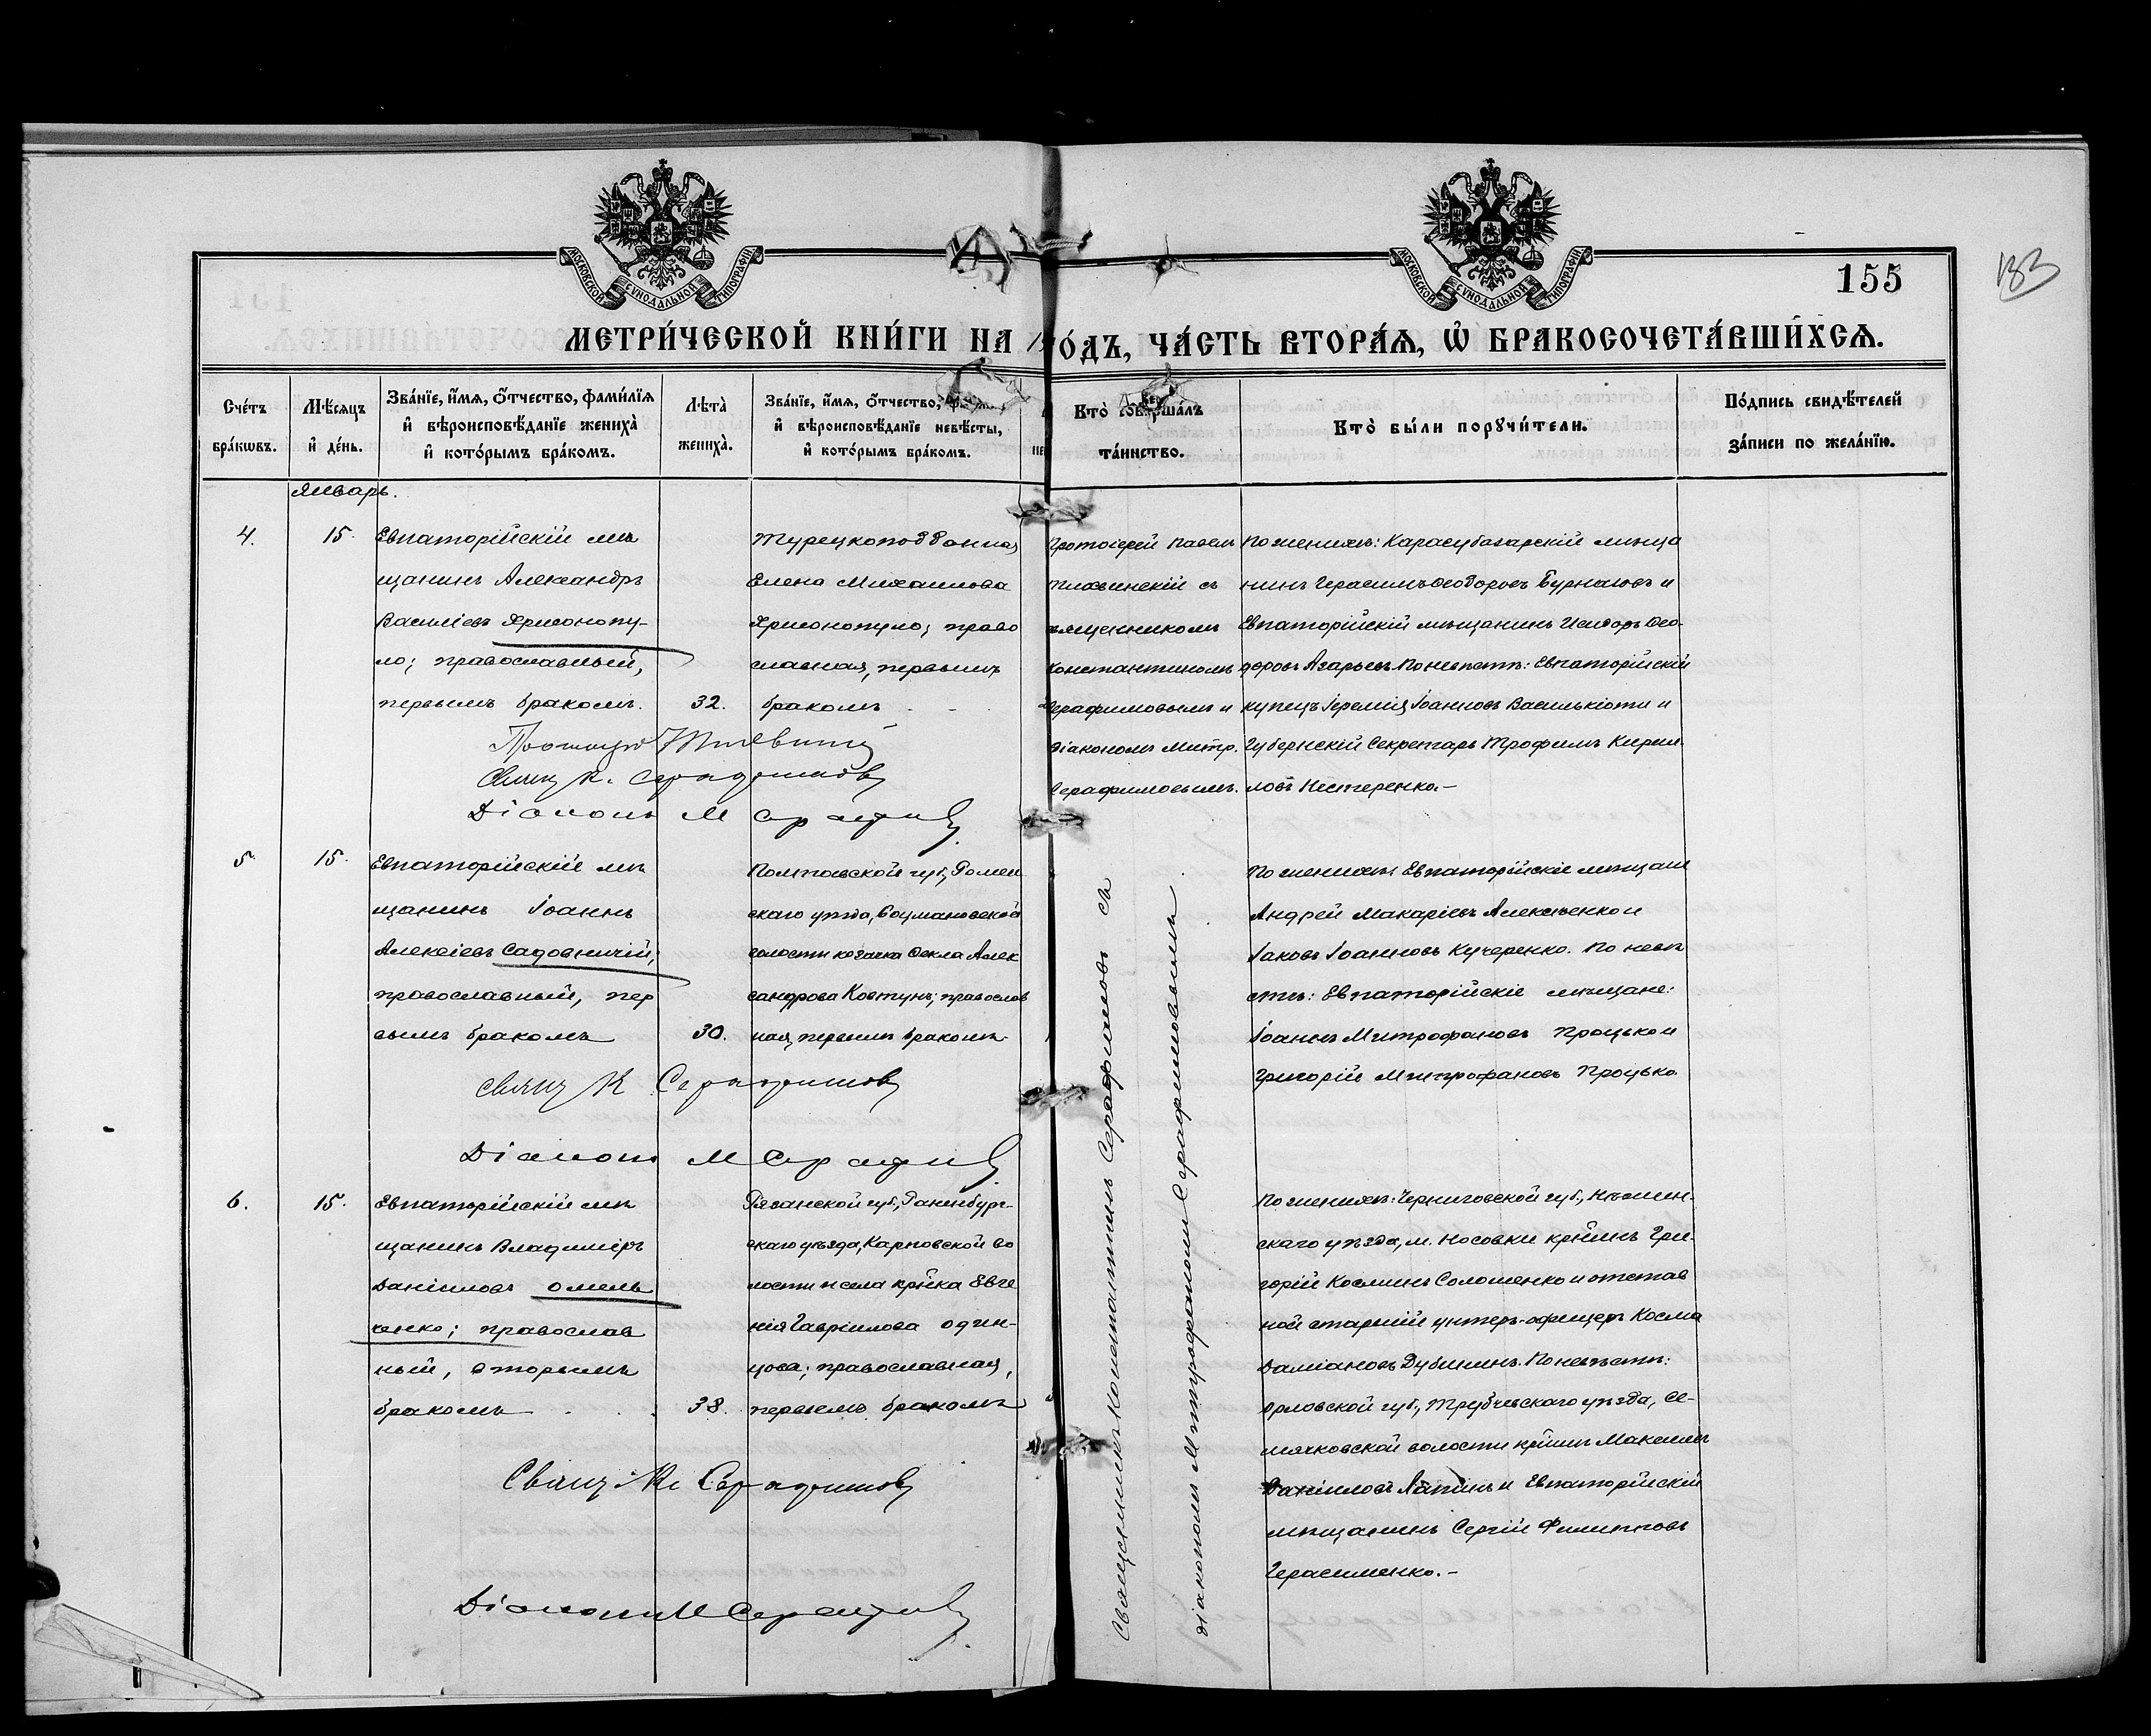 МОСКОВСКОЙ СѴНОДАЛЬНОЙ ТИПОГРАФІИ
МОСКОВСКОЙ СѴНОДАЛЬНОЙ ТИПОГРАФІИ
155
183
МЕТРИ́ЧЕСКОЙ КНИ́ГИ НА ГО́ДЪ, ЧА́СТЬ ВТОРА́Ѧ, Ѡ҆ БРАКОСОЧЕТА́ВШИХСѦ.
Сче́тъ бра́кѡвъ.
Мѣ́сяцъ и҆ де́нь.
Зва́нїе, и҆́мѧ, ѻ҆́тчество, фами́лїѧ
и҆ вѣроисповѣ́данїе жениха̀
и҆ кото́рымъ бра́комъ.
Лѣта̀ жениха̀.
Зва́нїе, и҆́мѧ, ѻ҆́тчество,
и҆ вѣроисповѣ́данїе невѣ́сты,
и҆ кото́рымъ бра́комъ.
Кто̀ соверша́лъ
та́инство.
Кто̀ бы́ли порꙋчи́тели.
По́дпись свидѣ́телей
за́писи по жела́нїю.
Январь.
4.
15.
Евпаторійскій мѣ
щанинъ Александръ
Василіевъ Ярмонопу-
ло; православный,
первымъ бракомъ.
32.
Турецкоподданная
Елена Михаилова
Ярмонопуло; право
славная, первымъ
бракомъ
Протоіерей Павелъ
Тиховинскій съ
священникомъ
Константиномъ
Серафимовымъ и
діакономъ Митр.
Серафимовымъ.
По женихѣ: Карасубазарскій мѣща
нинъ Герасимъ Ѳеодоровъ Бурнаковъ и
Евпаторійскій мѣщанинъ Исидоръ Ѳео-
доровъ Азарьевъ. По невѣстѣ: Евпаторійскій
купецъ Іеремія Іоанновъ Василькіоти и
Губернскій Секретарь Трофимъ Кирил-
ловъ Нестеренко.-
Свящ К. Серафимовъ
Діаконъ М Серафимов
5.
15.
Евпаторійскій мѣ
щанинъ Іоаннъ
Алексіевъ Садовничій,
православный, пер
вымъ бракомъ
30.
Полтавской губ., Ромен
скаго уѣзда,
волости козачка Ѳекла Алек
сандрова Ковтунъ; православ
ная, первымъ бракомъ.
По женихѣ: Евпаторійскіе мѣщане
Андрей Макаріевъ Алексѣенко и
Іаковъ Іоанновъ Кучеренко. По невѣ
стѣ: Евпаторійскіе мѣщане:
Іоаннъ Митрофановъ Процько и
Григорій Митрофановъ Процько.
Свящ К Серафимовъ
Діаконъ М Серафимов
6.
15.
Евпаторійскій мѣ
щанинъ Владиміръ
Даніиловъ Омель
ченко; православ
ный, вторымъ
бракомъ
38.
Рязанской губ., Раненбург-
скаго уѣзда, Карповской во
лости и села кр̃нка Евге
нія Гавріилова Один-
цова; православная,
первымъ бракомъ
Священникъ Константинъ Серафимовъ съ
діакономъ Митрофаномъ Серафимовымъ.
По женихѣ: Черниговской губ., Нѣжин-
скаго уѣзда, м. Носовки кр̃нинъ Гри-
горій Косминъ Соломенко и отстав
ной старшій унтеръ-офицеръ Косма
Даміановъ Дубининъ. По невѣстѣ:
Орловской губ., Трубчевскаго уѣзда, Се-
мячковской волости кр̃нинъ Максимъ
Даніиловъ Лапинъ и Евпаторійскій
мѣщанинъ Сергій Филипповъ
Герасименко.-
Свящ. К. Серафимовъ
Діаконъ М Серафимов